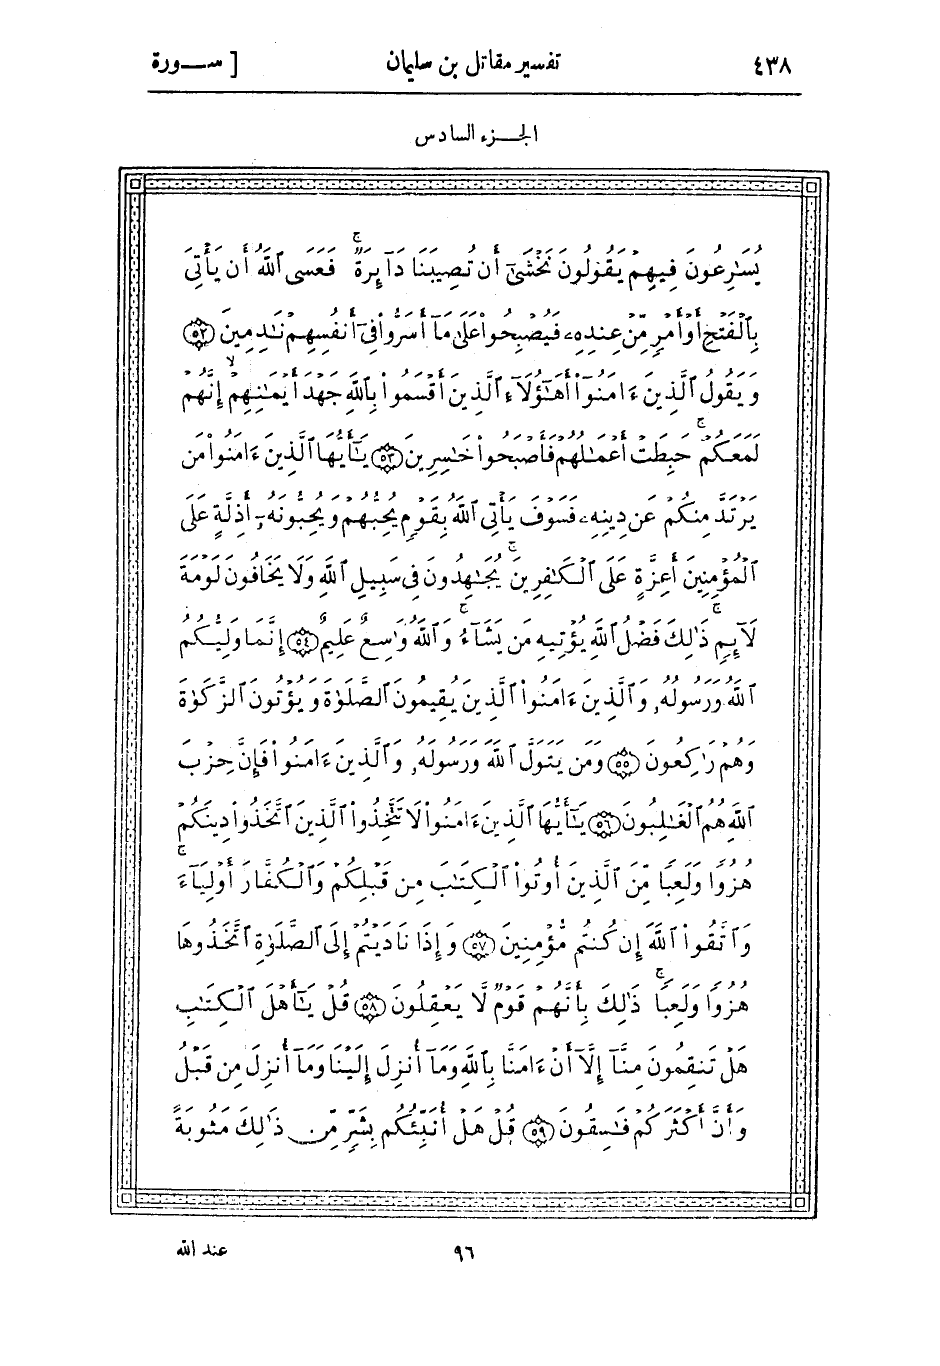 ٤٣٨
تفسير مقاتل بن سليمان
[ ســورة
الجــزء السادس
يُسَٰرِعُونَ فِيهِمْ يَقُولُونَ نَخْشَىٰٓ أَن تُصِيبَنَا دَآئِرَةٌ ۚ فَعَسَى ٱللَّهُ أَن يَأْتِىَ
بِٱلْفَتْحِ أَوْ أَمْرٍ مِّنْ عِندِهِۦ فَيُصْبِحُوا۟ عَلَىٰ مَآ أَسَرُّوا۟ فِىٓ أَنفُسِهِمْ نَٰدِمِينَ ۝٥٢
وَيَقُولُ ٱلَّذِينَ ءَامَنُوٓا۟ أَهَٰٓؤُلَآءِ ٱلَّذِينَ أَقْسَمُوا۟ بِٱللَّهِ جَهْدَ أَيْمَٰنِهِمْ ۙ إِنَّهُمْ
لَمَعَكُمْ ۚ حَبِطَتْ أَعْمَٰلُهُمْ فَأَصْبَحُوا۟ خَٰسِرِينَ ۝٥٣ يَٰٓأَيُّهَا ٱلَّذِينَ ءَامَنُوا۟ مَن
يَرْتَدَّ مِنكُمْ عَن دِينِهِۦ فَسَوْفَ يَأْتِى ٱللَّهُ بِقَوْمٍ يُحِبُّهُمْ وَيُحِبُّونَهُۥٓ أَذِلَّةٍ عَلَى
ٱلْمُؤْمِنِينَ أَعِزَّةٍ عَلَى ٱلْكَٰفِرِينَ ۚ يُجَٰهِدُونَ فِى سَبِيلِ ٱللَّهِ وَلَا يَخَافُونَ لَوْمَةَ
لَآئِمٍ ۚ ذَٰلِكَ فَضْلُ ٱللَّهِ يُؤْتِيهِ مَن يَشَآءُ ۚ وَٱللَّهُ وَٰسِعٌ عَلِيمٌ ۝٥٤ إِنَّمَا وَلِيُّكُمُ
ٱللَّهُ وَرَسُولُهُۥ وَٱلَّذِينَ ءَامَنُوا۟ ٱلَّذِينَ يُقِيمُونَ ٱلصَّلَوٰةَ وَيُؤْتُونَ ٱلزَّكَوٰةَ
وَهُمْ رَٰكِعُونَ ۝٥٥ وَمَن يَتَوَلَّ ٱللَّهَ وَرَسُولَهُۥ وَٱلَّذِينَ ءَامَنُوا۟ فَإِنَّ حِزْبَ
ٱللَّهِ هُمُ ٱلْغَٰلِبُونَ ۝٥٦ يَٰٓأَيُّهَا ٱلَّذِينَ ءَامَنُوا۟ لَا تَتَّخِذُوا۟ ٱلَّذِينَ ٱتَّخَذُوا۟ دِينَكُمْ
هُزُوًا وَلَعِبًا مِّنَ ٱلَّذِينَ أُوتُوا۟ ٱلْكِتَٰبَ مِن قَبْلِكُمْ وَٱلْكُفَّارَ أَوْلِيَآءَ ۚ
وَٱتَّقُوا۟ ٱللَّهَ إِن كُنتُم مُّؤْمِنِينَ ۝٥٧ وَإِذَا نَادَيْتُمْ إِلَى ٱلصَّلَوٰةِ ٱتَّخَذُوهَا
هُزُوًا وَلَعِبًا ۚ ذَٰلِكَ بِأَنَّهُمْ قَوْمٌ لَّا يَعْقِلُونَ ۝٥٨ قُلْ يَٰٓأَهْلَ ٱلْكِتَٰبِ
هَلْ تَنقِمُونَ مِنَّآ إِلَّآ أَنْ ءَامَنَّا بِٱللَّهِ وَمَآ أُنزِلَ إِلَيْنَا وَمَآ أُنزِلَ مِن قَبْلُ
وَأَنَّ أَكْثَرَكُمْ فَٰسِقُونَ ۝٥٩ قُلْ هَلْ أُنَبِّئُكُم بِشَرٍّ مِّن ذَٰلِكَ مَثُوبَةً
٩٦
عند الله